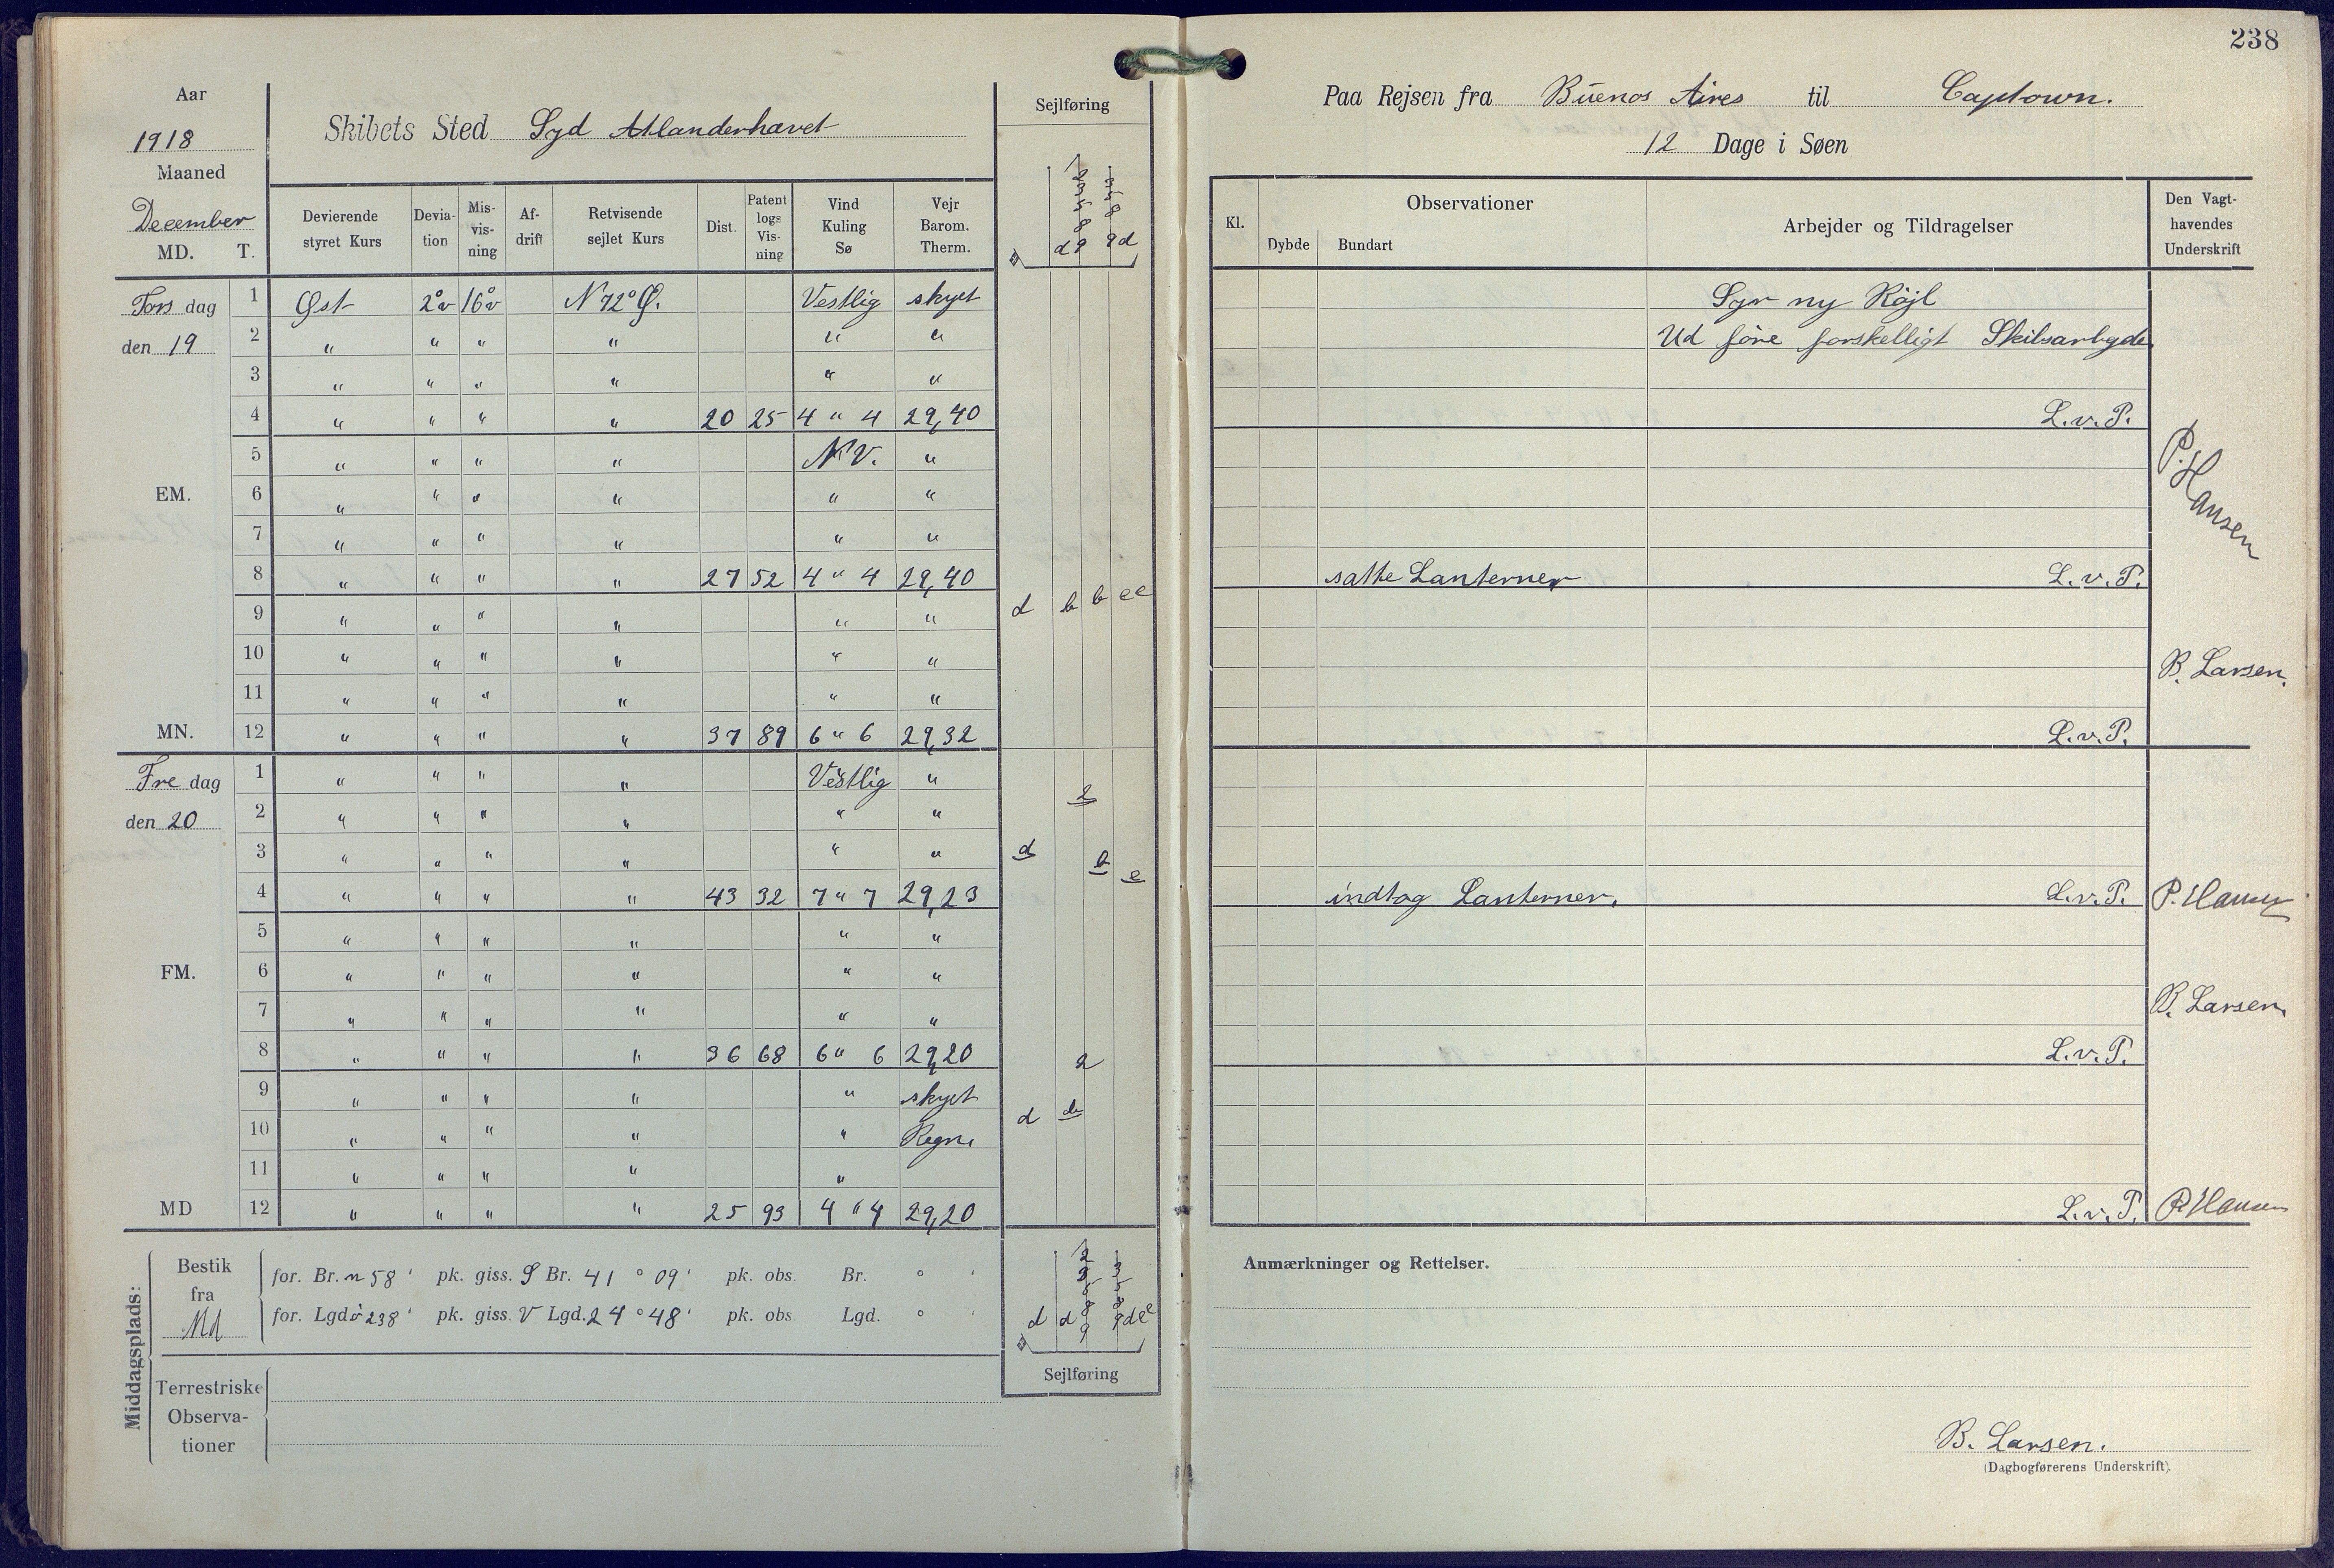 238
Aar
1918
Maaned
December
MD. T.
Skibets Sted Syd Atlanderhavet
Sejlføring
Devierende styret Kurs
Devia-tion
Mis-vis-ning
Af-drift
Retvisende sejlet Kurs
Dist.
Patent logs Vis-ning
Vind Kuling Sø
Vejr Barom. Therm.
Tors dag
den 19
1 Øst 2°v 16°v N 72° Ø. Vestlig skyet
2 " " " " " "
3 " " " " " "
4 " " " " 20 25 4 " 4 29,40
5 " " " " NV. "
EM.
6 " " " " " "
7 " " " " " "
8 " " " " 27 52 4 " 4 29,40
9 " " " " " "
d b b e e
10 " " " " " "
11 " " " " " "
MN. 12 " " " " 37 89 6 " 6 29,32
Fre dag
den 20
1 " " " " Vestlig "
2
2 " " " " " "
3 " " " " " "
d b e
4 " " " " 43 32 7 " 7 29,23
5 " " " " " "
FM.
6 " " " " " "
7 " " " " " "
8 " " " " 36 68 6 " 6 29,20
2
9 " " " " " skyet
10 " " " " " Regn.
d
11 " " " " "
MD 12 " " " " 25 93 4 " 4 29,20
Middagsplads:
Bestik fra Md
for. Br. n 58' pk. giss. S Br. 41 ° 09' pk. obs. Br. ° '
for. Lgd ø 238' pk. giss. V Lgd. 24 ° 48' pk. obs Lgd. ° '
Sejlføring
Terrestriske
Observa-
tioner
Paa Rejsen fra Buenos Aires til Captown.
12 Dage i Søen
Kl.
Observationer
Dybde Bundart
Arbejder og Tildragelser
Den Vagt-
havendes
Underskrift
Syr ny Röjl
Ud före forskelligt Skibsarbyde
L.v.P.
P. Hansen
satte Lanterner L.v.P.
B. Larsen.
L.v.P.
indtog Lanterner. L.v.P. P. Hansen
B. Larsen.
L.v.P.
L.v.P. P. Hansen
Anmærkninger og Rettelser.
B. Larsen.
(Dagbogførerens Underskrift).